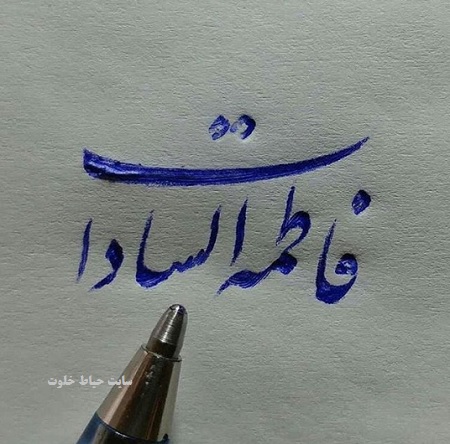 فاطمه السادات
سایت حیاط خلوت